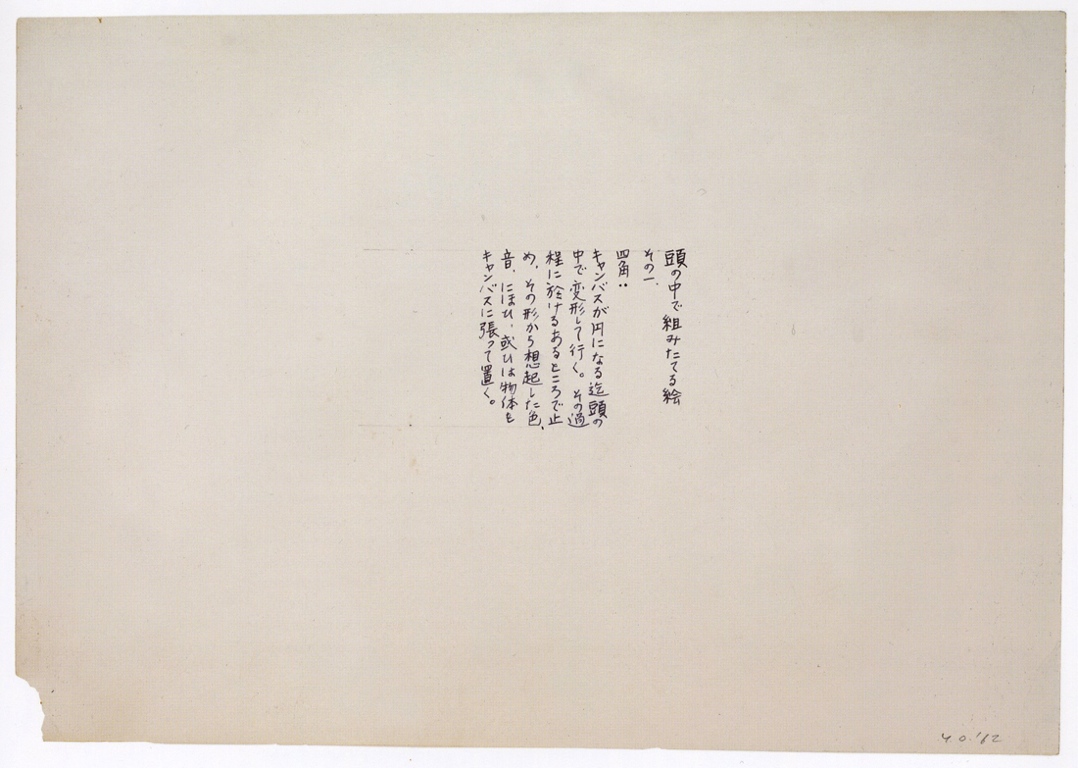 頭の中で組みたてる絵
その一.
四角:
キャンバスが円になる迄頭の
中で変形して行く。その過
程に於けるあるところで止
め、その形から想起した色、
音、にほひ、或ひは物体を
キャンバスに張って置く。
Y.O.'62